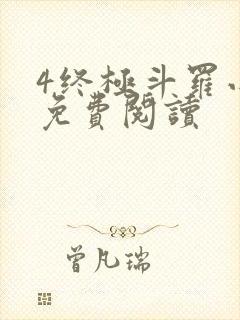 4终極斗羅
免費閱讀
曾凡瑞